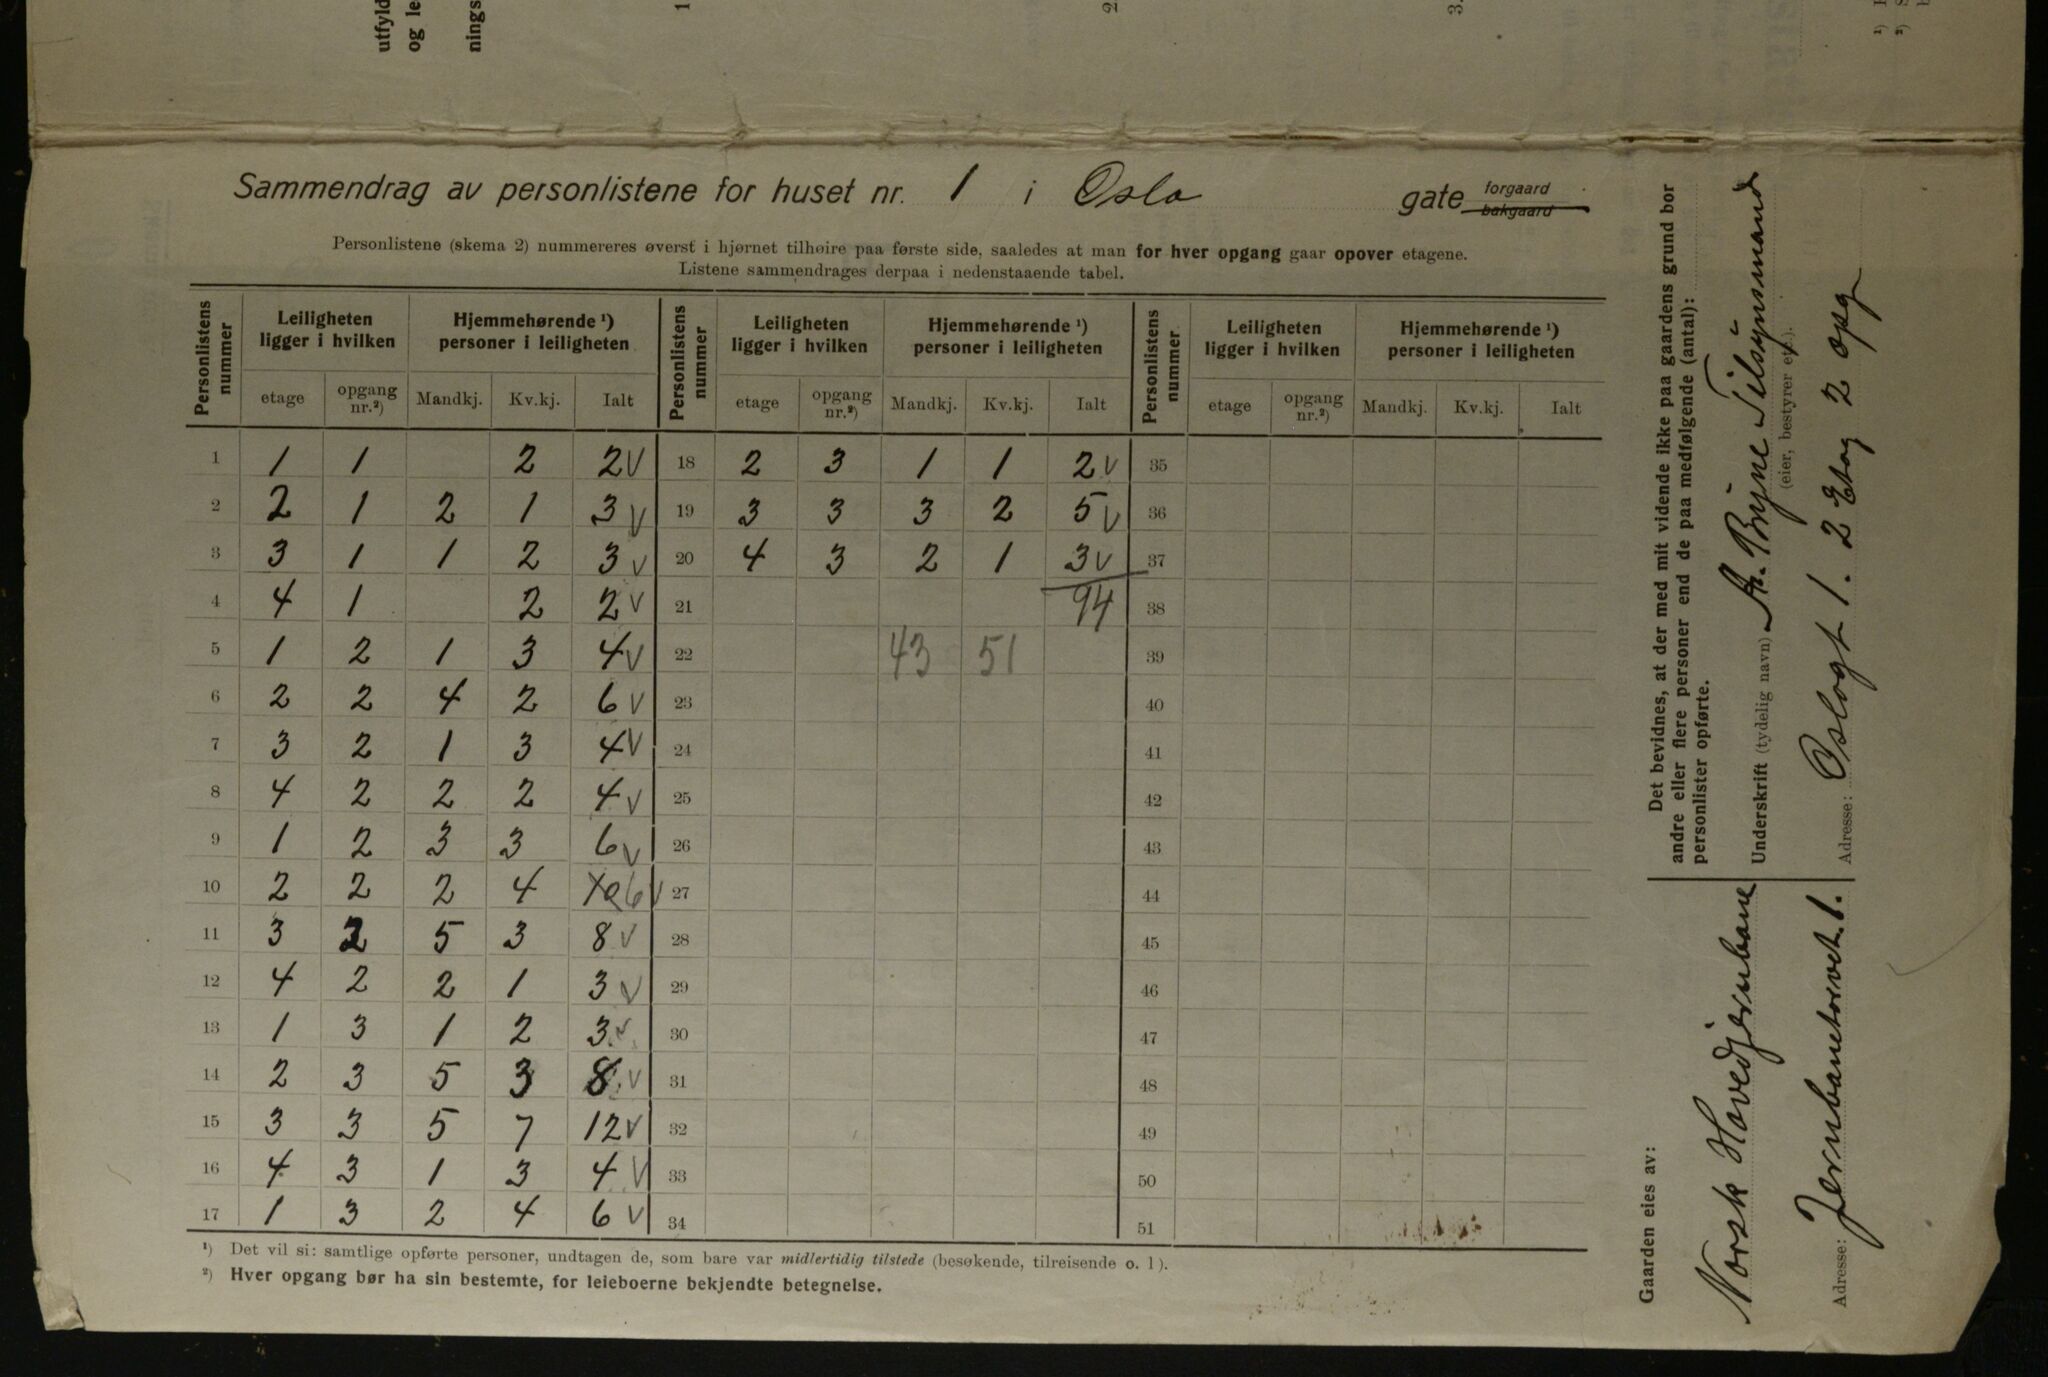 utfyld
og le
nings
1
2
3.
¹)
²) S
Sammendrag av personlistene for huset nr. 1 i Oslo gate forgaard bakgaard
Personlistene (skema 2) nummereres øverst i hjørnet tilhøire paa første side, saaledes at man for hver opgang gaar opover etagene.
Listene sammendrages derpaa i nedenstaaende tabel.
Personlistens nummer | Leiligheten ligger i hvilken | Hjemmehørende ¹) personer i leiligheten | Personlistens nummer | Leiligheten ligger i hvilken | Hjemmehørende ¹) personer i leiligheten | Personlistens nummer | Leiligheten ligger i hvilken | Hjemmehørende ¹) personer i leiligheten
etage | opgang nr.²) | Mandkj. | Kv.kj. | Ialt | etage | opgang nr.²) | Mandkj. | Kv.kj. | Ialt | etage | opgang nr.²) | Mandkj. | Kv.kj. | Ialt
1 | 1 | 1 | | 2 | 2 V | 18 | 2 | 3 | 1 | 1 | 2 V | 35
2 | 2 | 1 | 2 | 1 | 3 V | 19 | 3 | 3 | 3 | 2 | 5 V | 36
3 | 3 | 1 | 1 | 2 | 3 V | 20 | 4 | 3 | 2 | 1 | 3 V | 37
4 | 4 | 1 | | 2 | 2 V | 21 | | | | | 94 | 38
5 | 1 | 2 | 1 | 3 | 4 V | 22 | | | 43 | 51 | | 39
6 | 2 | 2 | 4 | 2 | 6 V | 23 | 40
7 | 3 | 2 | 1 | 3 | 4 V | 24 | 41
8 | 4 | 2 | 2 | 2 | 4 V | 25 | 42
9 | 1 | 2 | 3 | 3 | 6 V | 26 | 43
10 | 2 | 2 | 2 | 4 | 6 V | 27 | 44
11 | 3 | 2 | 5 | 3 | 8 V | 28 | 45
12 | 4 | 2 | 2 | 1 | 3 V | 29 | 46
13 | 1 | 3 | 1 | 2 | 3 V | 30 | 47
14 | 2 | 3 | 5 | 3 | 8 V | 31 | 48
15 | 3 | 3 | 5 | 7 | 12 V | 32 | 49
16 | 4 | 3 | 1 | 3 | 4 V | 33 | 50
17 | 1 | 3 | 2 | 4 | 6 V | 34 | 51
¹) Det vil si: samtlige opførte personer, undtagen de, som bare var midlertidig tilstede (besøkende, tilreisende o. l).
²) Hver opgang bør ha sin bestemte, for leieboerne bekjendte betegnelse.
Det bevidnes, at der med mit vidende ikke paa gaardens grund bor
andre eller flere personer end de paa medfølgende (antal):
personlister opførte.
Underskrift (tydelig navn) A. Bryne Tilsynsmand
(eier, bestyrer etc.).
Adresse: Oslogt 1. 2 Etag 2 opg
Gaarden eies av:
Norsk Hovedjernbane
Adresse: Jernbanetorvet 1.